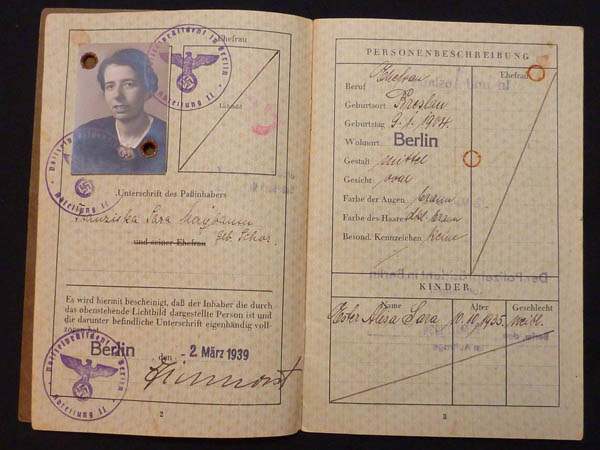 Ehefrau
Polizeipräsident in Berlin
Abteilung II
Lichtbild
Unterschrift des Paßinhabers
Franziska Sara Maybaum
geb. Schor
und seiner Ehefrau
Es wird hiermit bescheinigt, daß der Inhaber die durch
das obenstehende Lichtbild dargestellte Person ist und
die darunter befindliche Unterschrift eigenhändig voll-
zogen hat.
Berlin, den - 2. März 1939
Polizeipräsident in Berlin
Abteilung II
2
PERSONENBESCHREIBUNG
Ehefrau
Beruf Ehefrau
Geburtsort Breslau
Geburtstag 9. 1. 1904.
Wohnort Berlin
Gestalt mittel
Gesicht oval
Farbe der Augen braun
Farbe des Haares dkl. braun
Besond. Kennzeichen keine
Der Polizeipräsident in Berlin
KINDER
Name Alter Geschlecht
Ester Alisa Sara 10. 10. 1935. weibl.
3